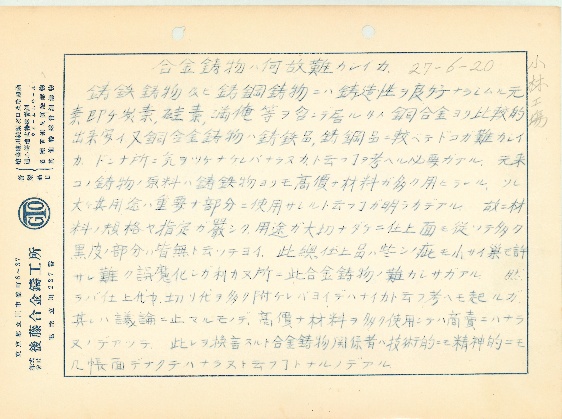 合金鋳物ハ何故難カシイカ 27-6-20
鋳鉄鋳物及ビ鋳鋼鋳物ニハ鋳造性ヲ良好ナラシムル元
素即チ炭素、硅素、満俺等ヲ含ンデ居ルカラ銅合金ヨリ比較的
出来易イ又銅合金鋳物ハ鋳鉄品、鋳鋼品ニ較ベテドコガ難カシイ
カ、ドンナ所ニ気ヲツケナケレバナラヌカト云フコトヲ考ヘル必要ガアル、元来
コノ鋳物ノ原料ハ鋳鉄物ヨリモ高價ナ材料ガ多ク用ヒラレ、ソシテ
大キナ用途ハ重要ナ部分ニ使用サレルト云フコトガ明ラカデアル 故ニ材
料ノ規格ヤ指定ガ厳シク、用途ガ大切ナダケニ仕上面モ従ッテ多ク
黒皮ノ部分ハ皆無ト云ッテヨイ、此ノ様仕上品ハ些ノ疵モ小サイ巣デ許
サレ難ク誤魔化シガ利カヌ所ニ此合金鋳物ノ難カシサガアル 然
ラバ仕上代カ、切リ代ヲ多ク付ケレバヨイデハナイカト云フ考ヘモ起ルガ、
其レハ議論ニ止マルモノデ、高價ナ材料ヲ多ク使用シテハ商賣ニハナラ
ヌノデアッテ、此レヲ換言スルト合金鋳物ノ関係者ハ技術的ニモ精神的ニモ
几帳面デナクテハナラヌト云フコトナルノデアル
小林工場
株式会社 後藤合金鋳工所
GTO